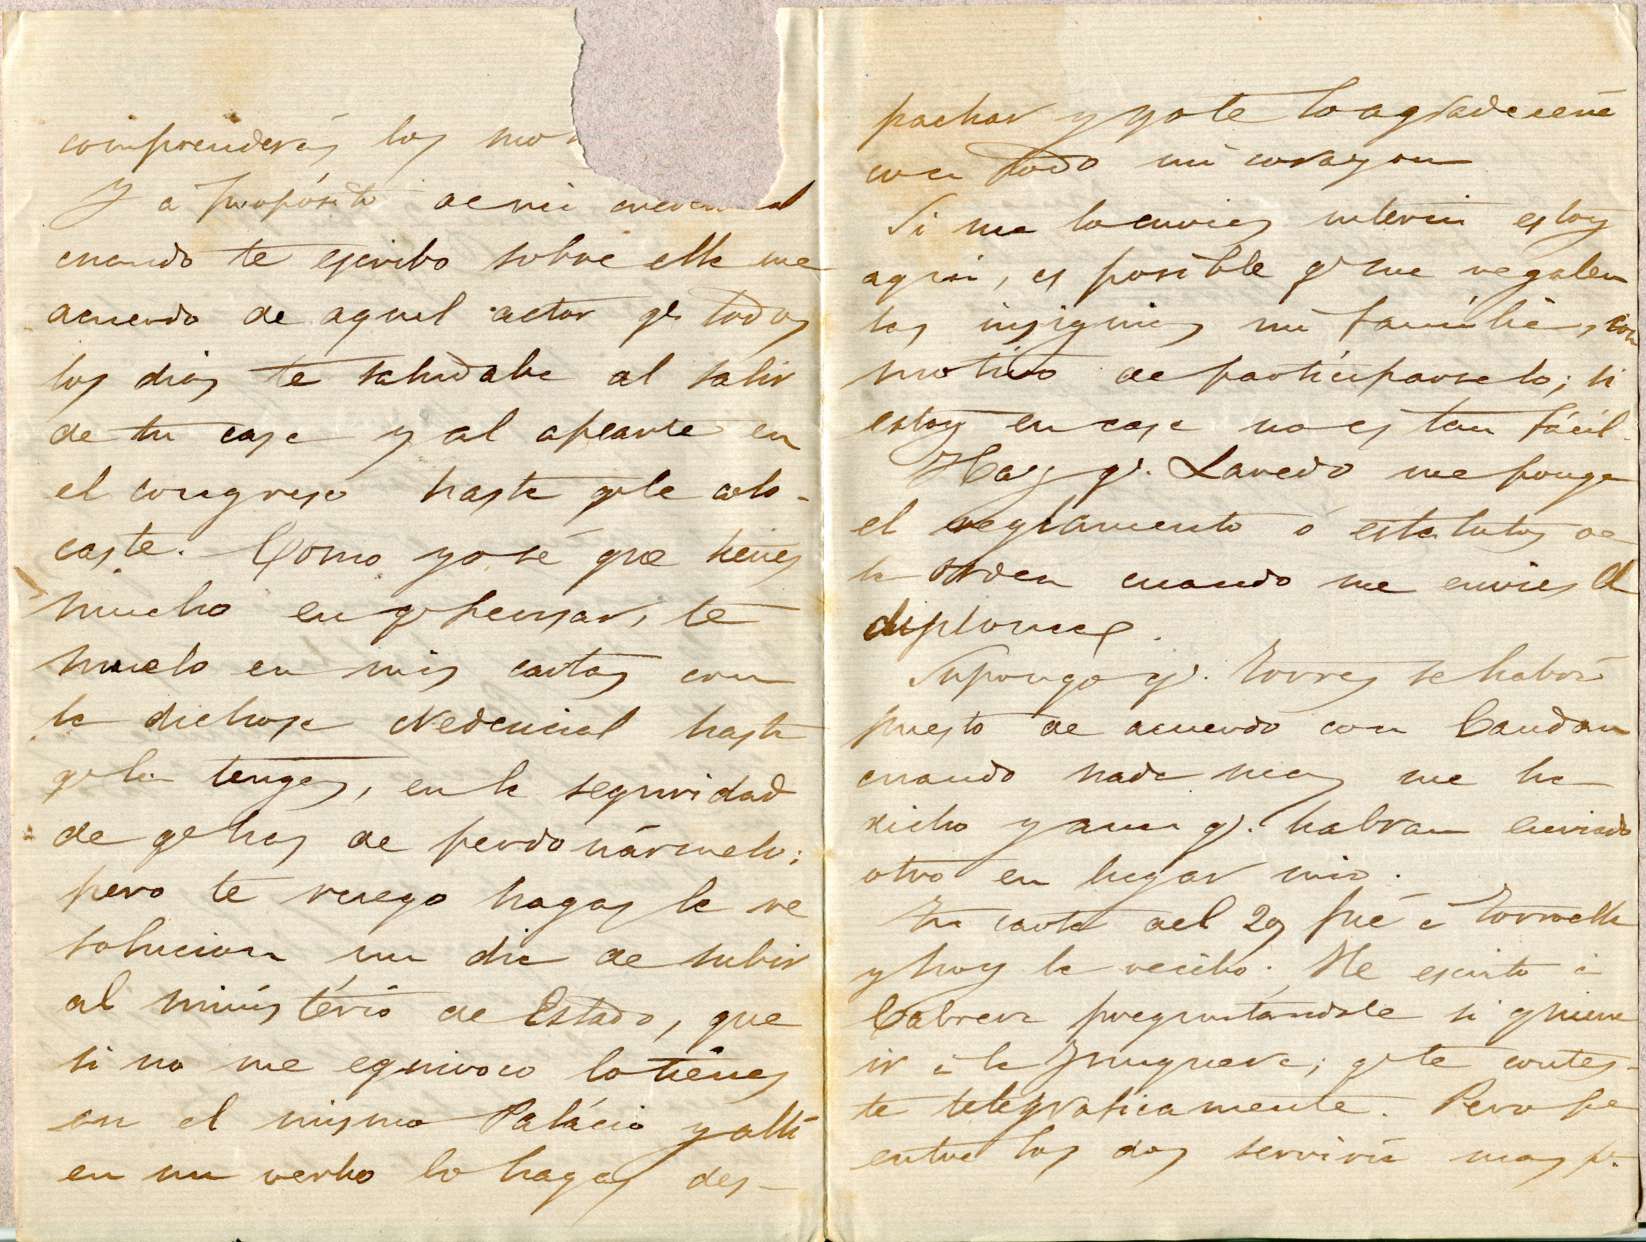 comprenderás los mo
Y a propósito de mi credencial
cuando te escribo sobre ella me
acuerdo de aquel actor qe todos
los dias te saludaba al salir
de tu casa y al apearte en
el congreso hasta qe le colo-
caste. Como yo sé que tienes
mucho en qe pensar, te
muelo en mis cartas con
la dichosa credencial hasta
qe la tengas, en la seguridad
de qe has de perdonármelo;
pero te ruego hagas la re
solucion un dia de subir
al ministério de Estado, que
si no me equivoco lo tienes
en el mismo Palácio y alli
en un verbo lo hagas des-
pachar y yo te lo agradeceré
con todo mi corazon
Si me lo envias interin estoy
aqui, es posible qe me regalen
las insignias mi família, con
motivo de participarselo; si
estoy en casa no es tan fácil.
Haz qe. Laredo me ponga
el reglamento ó estatutos de
la orden cuando me envies el
diploma.
Supongo qe. Torres se habrá
puesto de acuerdo con Candau
cuando nada mas me ha
dicho y aun qe. habran enviado
otro en lugar mio.
Tu carta del 29 fué á
y hoy la recibo. He escrito á
Cabrera preguntandole si quiere
ir á la; qe te contes-
te telegraficamente. Pero
entre los dos serviria mas